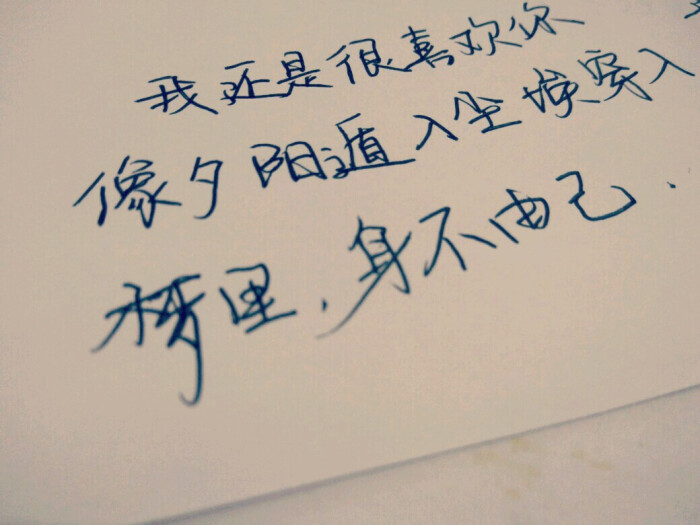 我还是很喜欢你
像夕阳遁入尘埃穿入
梦里,身不由己.